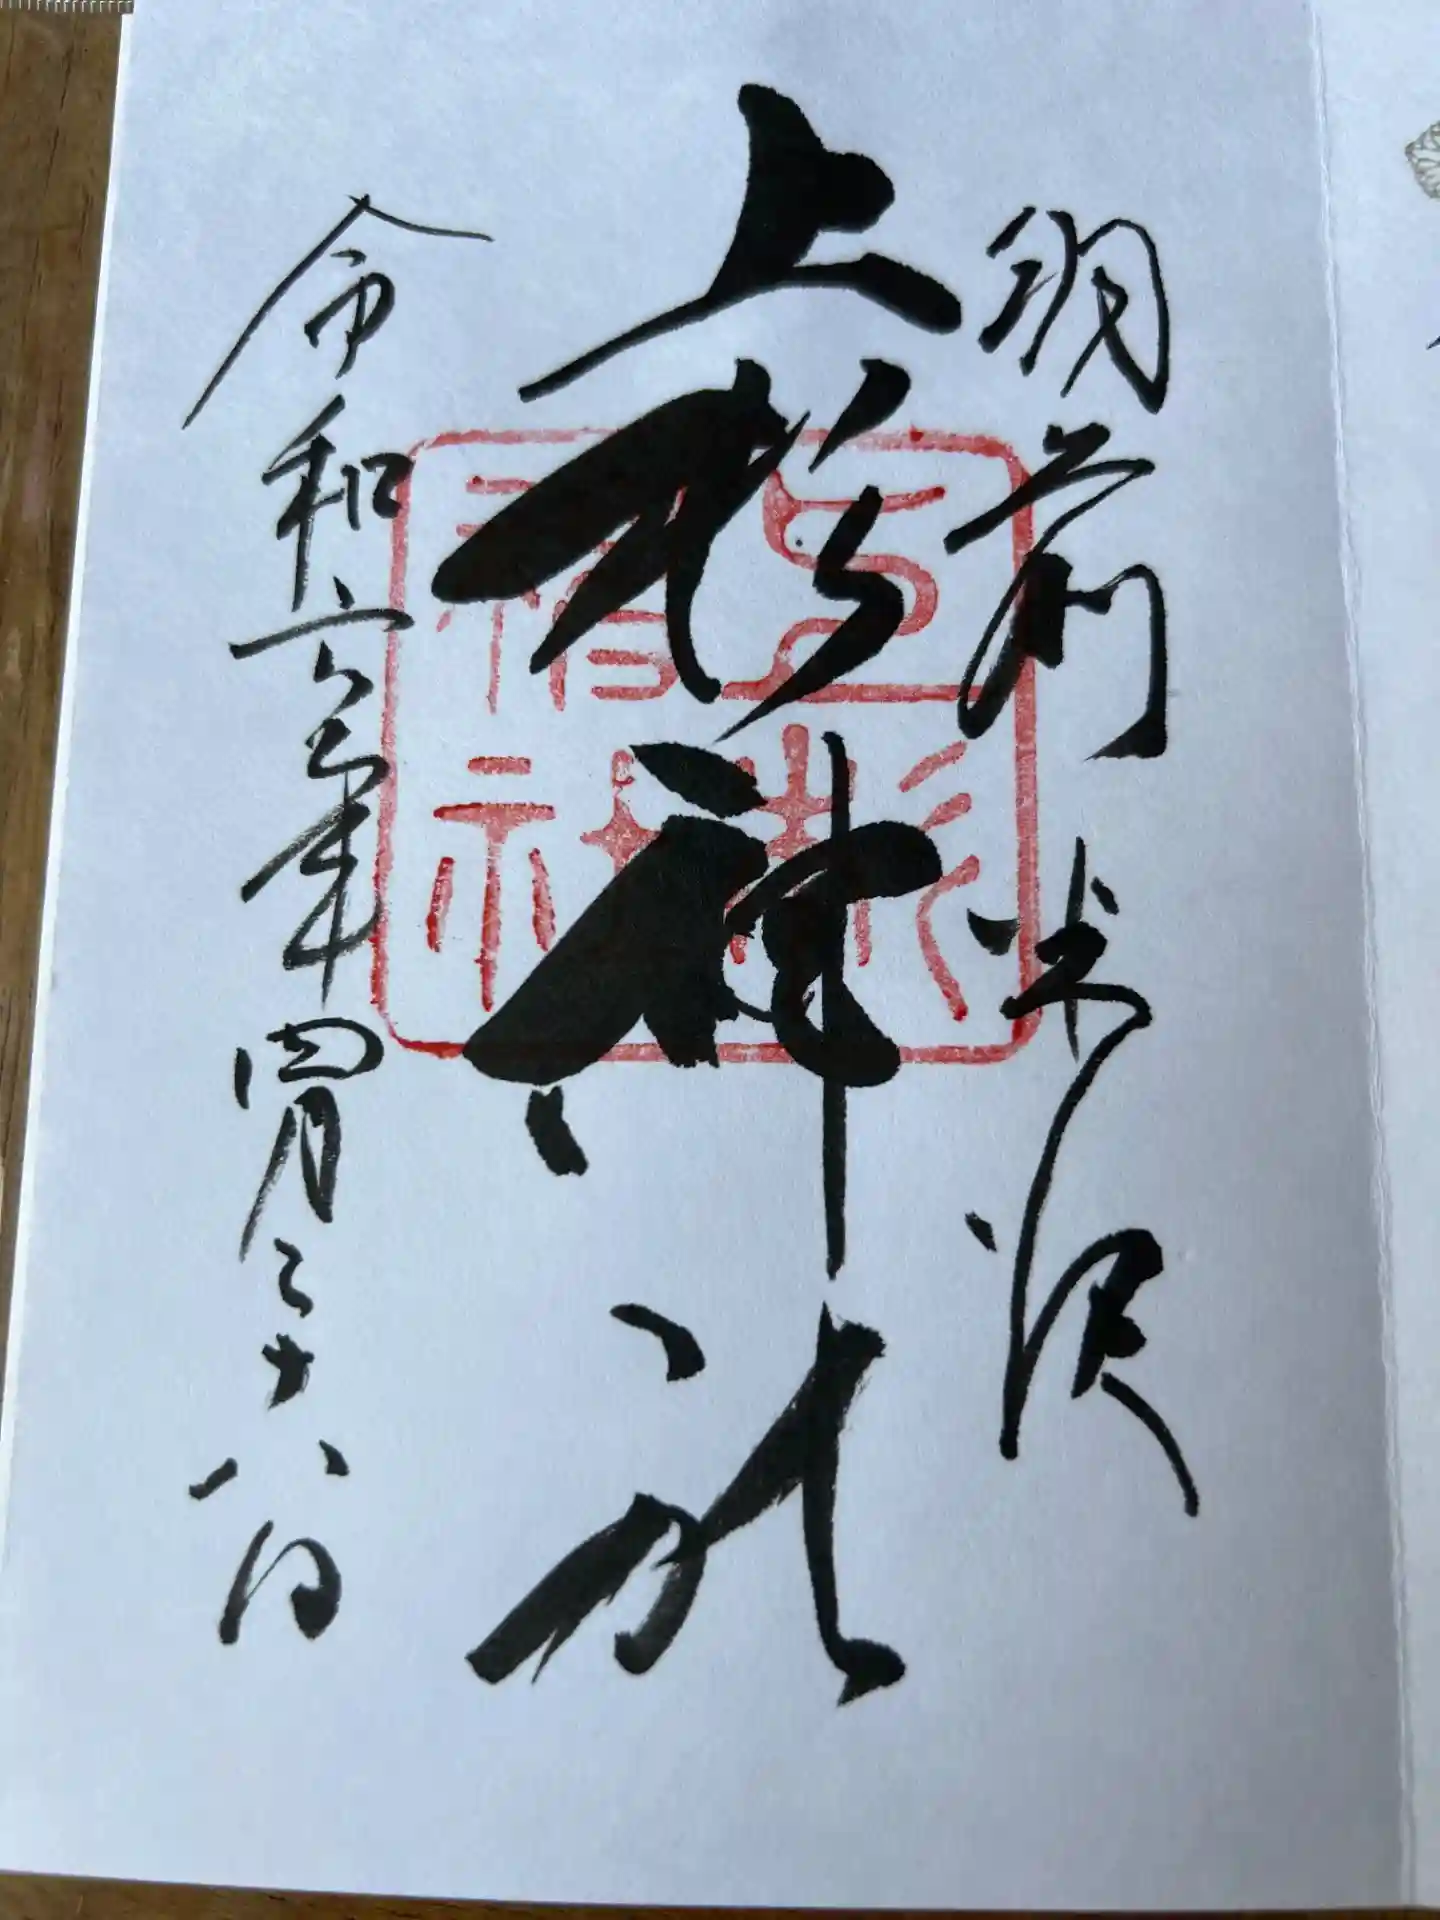 羽前 米沢
上杉神社
令和六年四月二十八日
上杉神社